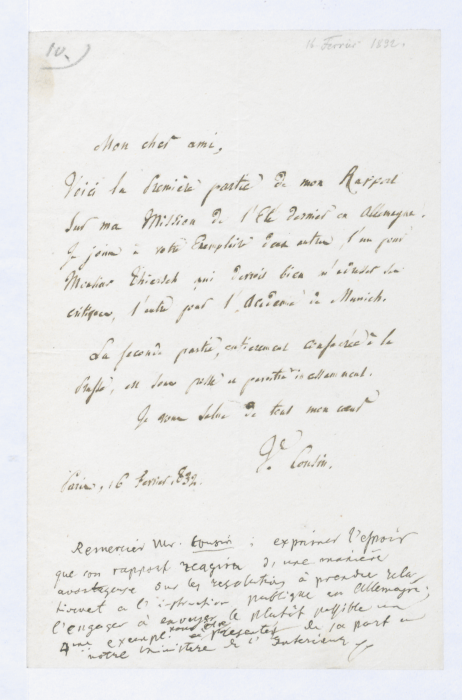 10.
16 Fevrier 1832.
Mon cher ami,
Voici la première partie de mon Rapport
sur ma Mission de l'Eté dernier en Allemagne.
Je joins à votre Exemplaire deux autres, l'un pour
Monsieur Thiersch qui devroit bien m'adresser des
critiques, l'autre pour l'Académie de Munich.
La seconde partie, entierement consacrée à la
Prusse, est sous presse et paroitra incessamment.
Je vous salue de tout mon cœur
Vr Cousin.
Paris, 16 Fevrier 1832.
Remercier Mr. Cousin : exprimer l'espoir
que son rapport reagira d'une manière
avantageuse sur les resolutions à prendre rela
tivement a l'instruction publique en Allemagne;
l'engager à envoyer le plutôt possible un
exempl. pour être présenté de sa part a
notre ministre de l'Interieur